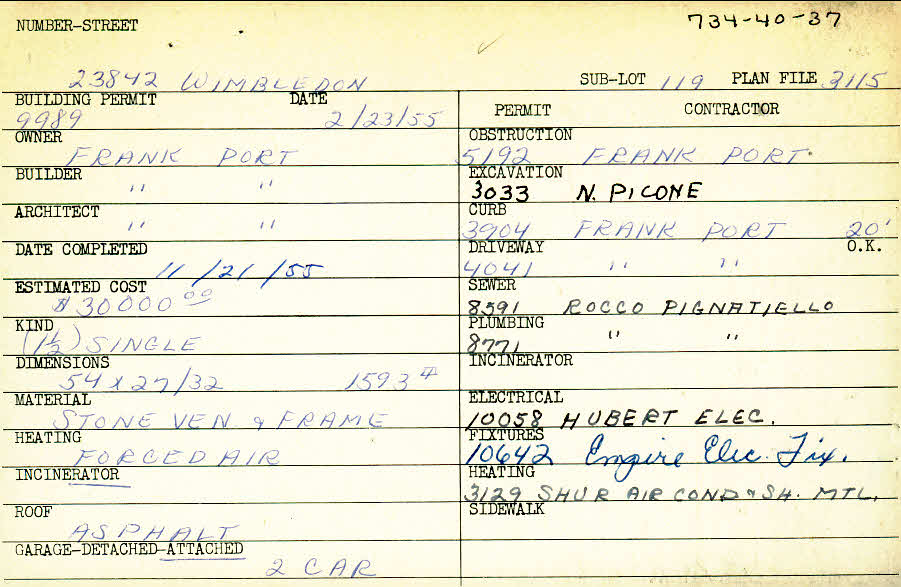 734-40-37
NUMBER-STREET
23842 WIMBLEDON SUB-LOT 119 PLAN FILE 3115
BUILDING PERMIT DATE
9989 2/23/55
OWNER
FRANK PORT
BUILDER
" "
ARCHITECT
" "
DATE COMPLETED
11/21/55
ESTIMATED COST
$30000.00
KIND
(1½) SINGLE
DIMENSIONS
54 x 27/32 1593 #
MATERIAL
STONE VEN & FRAME
HEATING
FORCED AIR
INCINERATOR
ROOF
ASPHALT
GARAGE-DETACHED-ATTACHED
2 CAR
PERMIT CONTRACTOR
OBSTRUCTION
5192 FRANK PORT
EXCAVATION
3033 N. PICONE
CURB
3904 FRANK PORT 20'
DRIVEWAY O.K.
4041 " "
SEWER
8591 ROCCO PIGNATIELLO
PLUMBING
8771 " "
INCINERATOR
ELECTRICAL
10058 HUBERT ELEC.
FIXTURES
10642 Empire Elec. Fix.
HEATING
3129 SHUR AIR COND & SH. MTL.
SIDEWALK